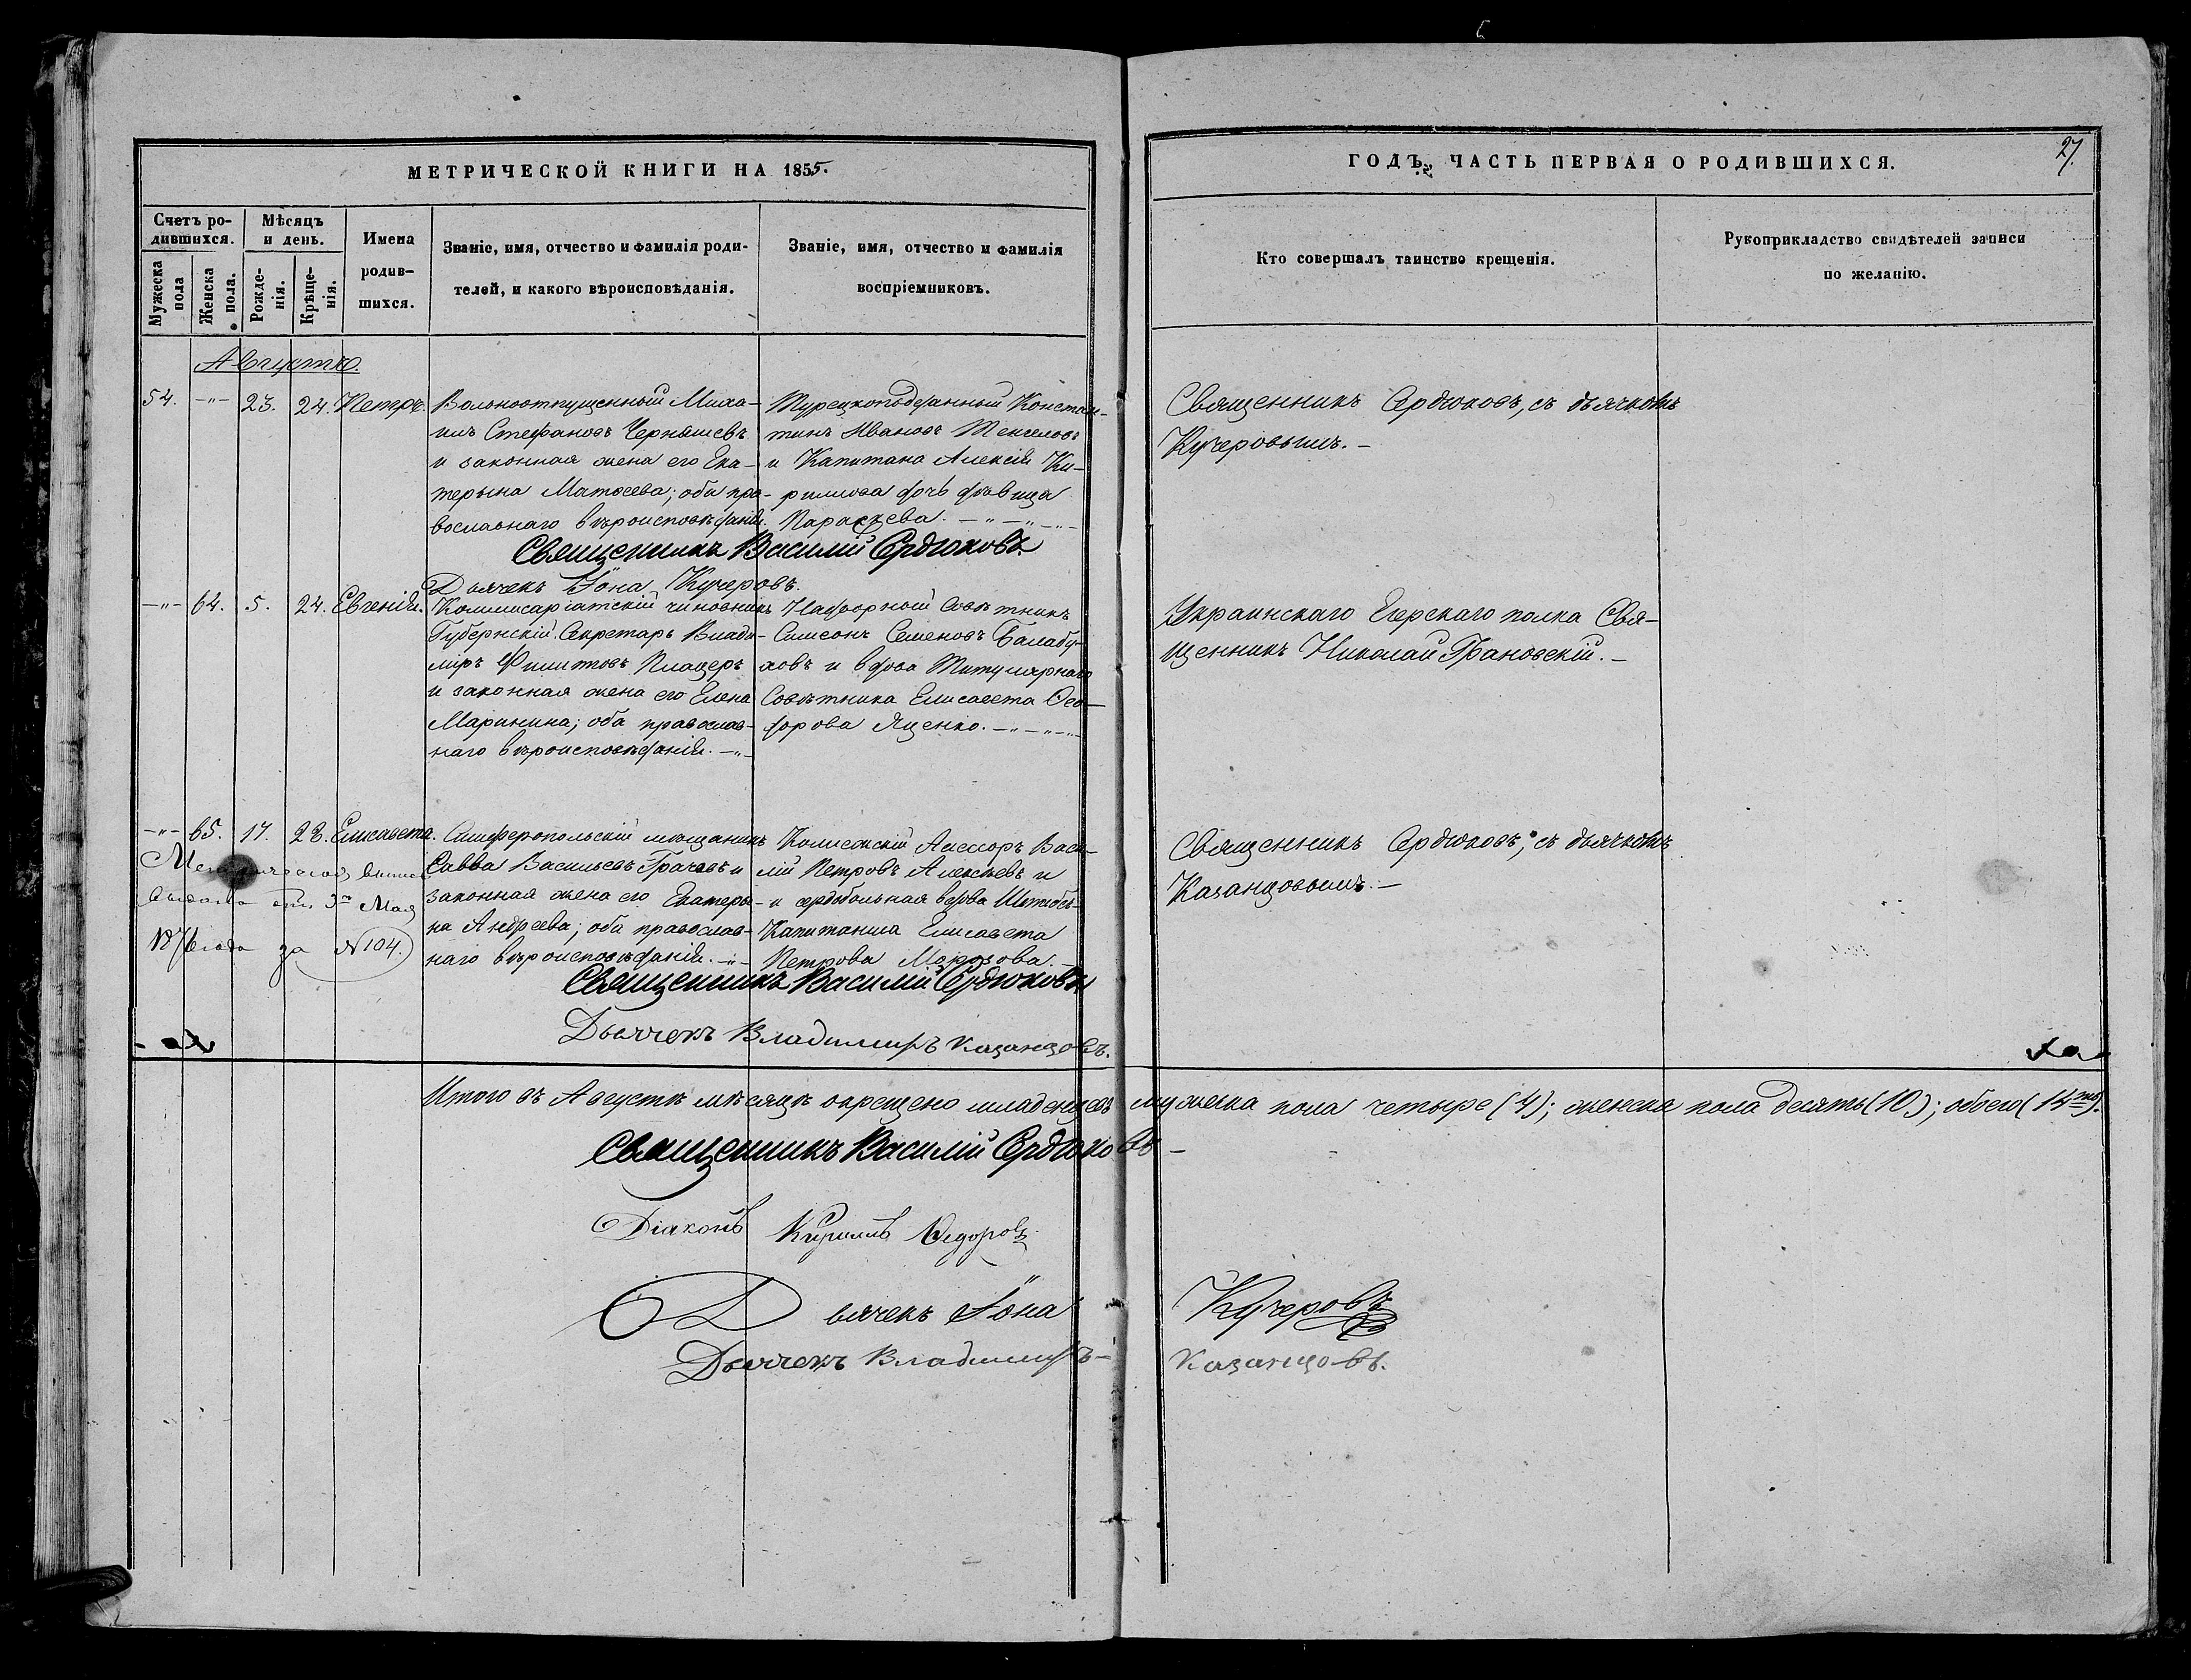 МЕТРИЧЕСКОЙ КНИГИ НА 1855.
ГОДЪ, ЧАСТЬ ПЕРВАЯ О РОДИВШИХСЯ.
27.
Счетъ родившихся.
Мужеска пола
Женска пола.
Мѣсяцъ и день.
Рожденія.
Крѣщенія.
Имена родившихся.
Званіе, имя, отчество и фамилія родителей, и какого вѣроисповѣданія.
Званіе, имя, отчество и фамилія воспріемниковъ.
Кто совершалъ таинство крещенія.
Рукоприкладство свидѣтелей записи по желанію.
Августъ.
54. -"- 23. 24. Петръ.
Вольноотпущенный Миха-
илъ Стефановъ Чернышевъ
и законная жена его Ека-
терына Матѳеева; оба пра-
вославнаго вѣроисповѣданія.
Турецкоподданный Констан-
тинъ Ивановъ
и Капитана Алексія Ки-
рилиова дочь дѣвица
Параскева.
Священникъ Сердюковъ, съ дьячкомъ
Кучеровымъ.
Священникъ Василій Сердюковъ
Дьячекъ Іона Кучеровъ.
-"- 64. 5. 24. Евгенія.
Коммисаріатскій чиновникъ
Губернскій Секретарь Влади-
міръ Филиповъ
и законная жена его Елена
Маринина; оба православ-
наго вѣроисповѣданія.
Надворной Совѣтникъ
Симеонъ Семеновъ Балабу-
ховъ и вдова Титулярнаго
Совѣтника Елисавета Ѳео-
дорова Яценко.
Украинскаго Егерскаго полка Свя-
щенникъ Николай Грановскій.
-"- 65. 17. 28. Елисавета.
Симферопольскій мѣщанинъ
Савва Васильевъ Грачовъ и
законная жена его Екатери-
на Андреева; оба православ-
наго вѣроисповѣданія.
Колежскій Ассесоръ Васи-
лій Петровъ Алексѣевъ и
и сердобольная вдова Штабсъ-
Капитанша Елисавета
Петрова Морозова.
Священникъ Сердюковъ, съ дьячкомъ
Казанцовымъ.
Метрическая
выдана 3го Мая
1876 года за №104.
Священникъ Василій Сердюковъ
Дьячекъ Владимиръ Казанцовъ.
Итого въ Августѣ мѣсяцѣ окрещено младенцевъ мужеска пола четыре (4); женска пола десять (10); обоего (14ть).
Священникъ Василій Сердюковъ
Діаконъ Кириллъ Ѳедоровъ
Дьячекъ Іона Кучеровъ
Дьячекъ Владимиръ Казанцовъ.